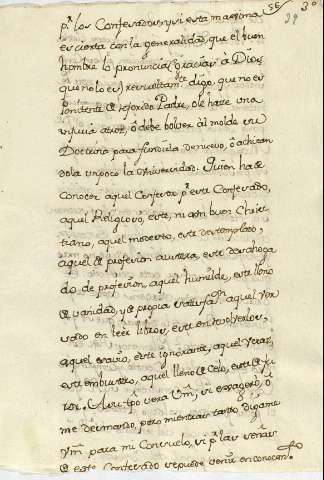 56 3º
29
pª los Confesadores, y si esta maxima
es cierta con la generalidad, que el buen
hombre lo pronuncia (gracias â Dios,
que no lo es) resueltamte digo, que no es
penitente el referido Padre, ô le hace una
injuria atroz, ô debe bolver al molde su
Doctrina para fundirla de nuevo, ô achican
dola un poco la Universidad. Quien ha de
conocer aquel Confesor pr este Confesado,
aquel Religioso, este, ni aun buen Chris
tiano, aquel modesto, este destemplado,
aquel de profesion austera, este desahoga
do de profesion, aquel humilde, este lleno
de vanidad, y de propia
vado en leer libros, este en rebolverlos,
aquel savio, este ignorante, aquel veraz,
este embustero, aquel lleno de celo, este de fu
ror. Aora pr vera Vm, si exagero, ô
me desmando, pero mientras tanto digame
Vm para mi Consuelo, si pr las señas
de este Confesado se puede venir en conocimto